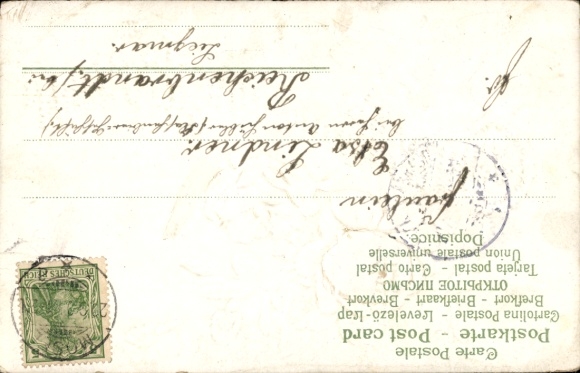 Carte Postale
Postkarte - Post card
Cartolina Postale - Levelező-Lap
Brefkort - Briefkaart - Brevkort
ОТКРЫТОЕ ПИСЬМО
Tarjeta postal - Carto postal
Union postale universelle
Dopisnice.
DEUTSCHES REICH
5
Fräulein
Elsa Lindner.
bei Herrn Anton
Reichenbrandt/bei
Siegmar.
Fr.